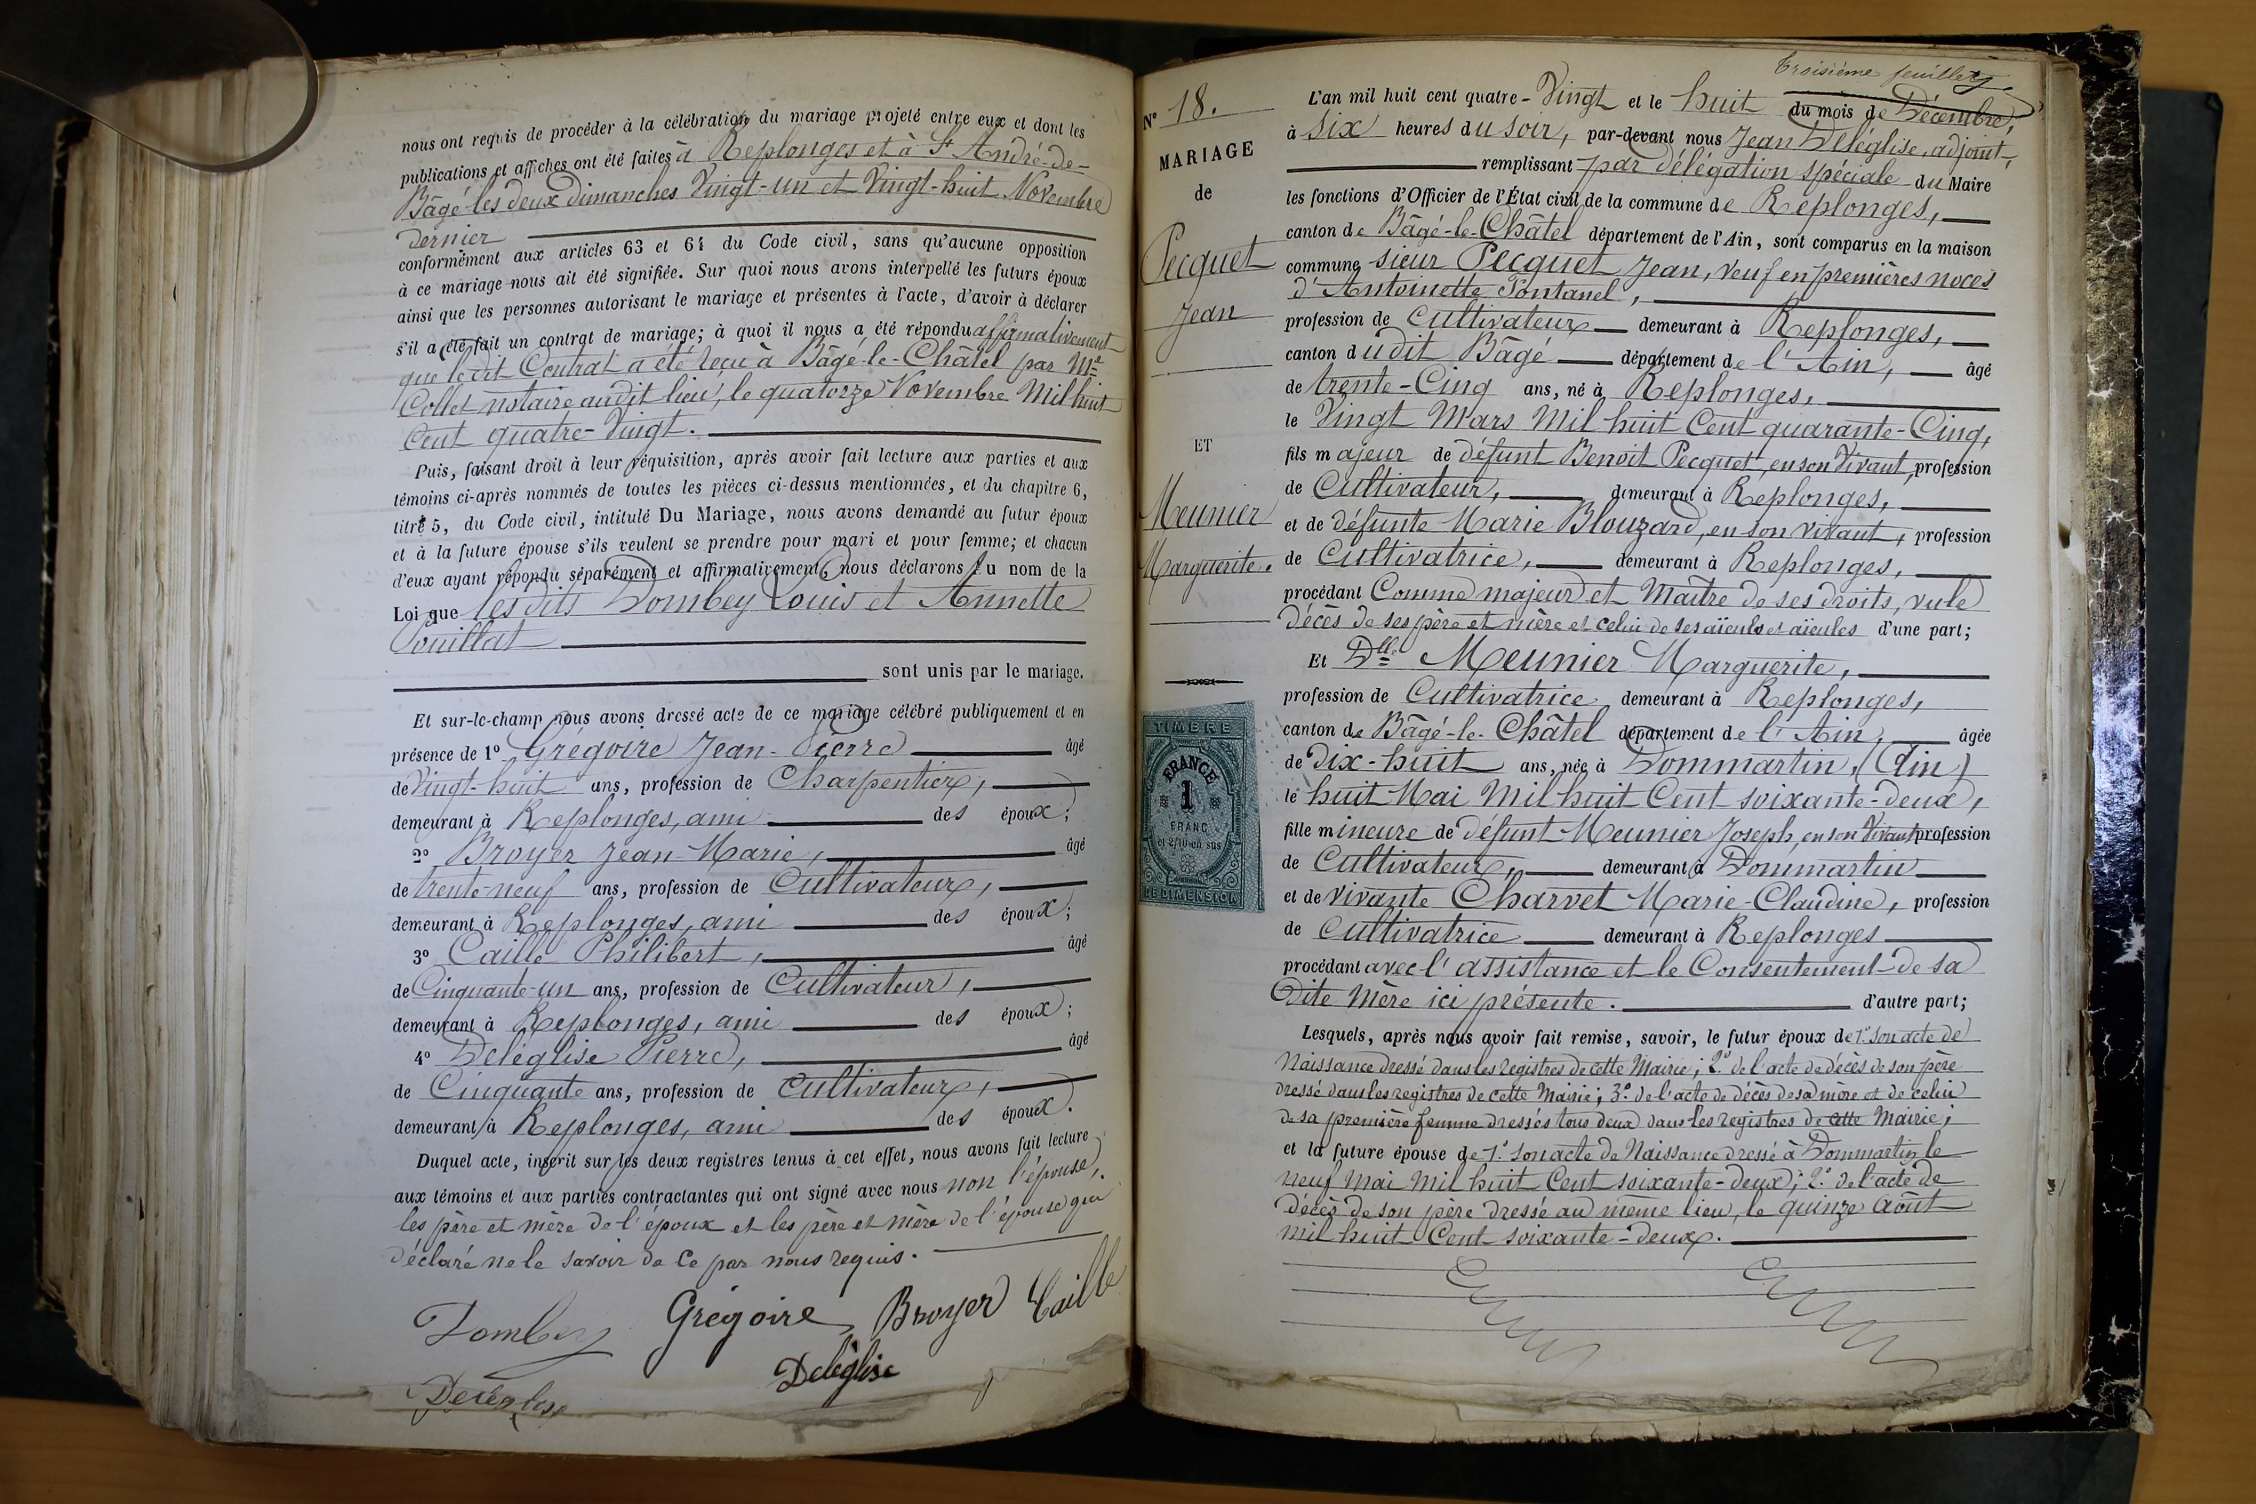 nous ont requis de procéder à la célébration du mariage projeté entre eux et dont les
publications et affiches ont été faites à Replonges et à St André-de-
Bâgé les deux dimanches Vingt-un et Vingt-huit Novembre
dernier
conformément aux articles 63 et 64 du Code civil, sans qu'aucune opposition
à ce mariage nous ait été signifiée. Sur quoi nous avons interpellé les futurs époux
ainsi que les personnes autorisant le mariage et présentes à l'acte, d'avoir à déclarer
s'il a été fait un contrat de mariage; à quoi il nous a été répondu affirmativement
que le dit Contrat a été reçu à Bâgé-le-Châtel par Me
Collet notaire audit lieu, le quatorze Novembre Mil huit
Cent quatre-Vingt.
Puis, faisant droit à leur réquisition, après avoir fait lecture aux parties et aux
témoins ci-après nommés de toutes les pièces ci-dessus mentionnées, et du chapitre 6,
titre 5, du Code civil, intitulé Du Mariage, nous avons demandé au futur époux
et à la future épouse s'ils veulent se prendre pour mari et pour femme; et chacun
d'eux ayant répondu séparément et affirmativement, nous déclarons au nom de la
Loi que les dits Dombey Louis et Annette
Pouillat
sont unis par le mariage.
Et sur-le-champ nous avons dressé acte de ce mariage célébré publiquement et en
présence de 1º Grégoire Jean-Pierre âgé
de Vingt-huit ans, profession de Charpentier,
demeurant à Replonges, ami des époux;
2º Broyer Jean-Marie, âgé
de trente-neuf ans, profession de Cultivateur,
demeurant à Replonges, ami des époux;
3º Caille Philibert, âgé
de Cinquante-un ans, profession de Cultivateur,
demeurant à Replonges, ami des époux;
4º Deléglise Pierre, âgé
de Cinquante ans, profession de Cultivateur,
demeurant à Replonges, ami des époux.
Duquel acte, inscrit sur les deux registres tenus à cet effet, nous avons fait lecture
aux témoins et aux parties contractantes qui ont signé avec nous non l'épouse,
les père et mère de l'époux et les père et mère de l'épouse qui
déclaré ne le savoir de ce par nous requis.
Dombey Grégoire Broyer Caille
Deléglise
Troisième feuillet
Nº 18.
MARIAGE
de
Pecquet
Jean
ET
Meunier
Marguerite.
TIMBRE
FRANCE
1
FRANC
et 2/10 en sus
DE DIMENSION
L'an mil huit cent quatre-Vingt et le huit du mois de Décembre,
à Six heures du soir, par-devant nous Jean Deléglise, adjoint,
remplissant par délégation spéciale du Maire
les fonctions d'Officier de l'État civil de la commune de Replonges,
canton de Bâgé-le-Châtel département de l'Ain, sont comparus en la maison
commune sieur Pecquet Jean, Veuf en premières noces
d'Antoinette Fontanel,
profession de Cultivateur demeurant à Replonges,
canton dudit Bâgé département de l'Ain, âgé
de trente-Cinq ans, né à Replonges,
le Vingt Mars Mil huit Cent quarante-Cinq,
fils majeur de défunt Benoit Pecquet, en son Vivant, profession
de Cultivateur, demeurant à Replonges,
et de défunte Marie Blouzard, en son vivant, profession
de Cultivatrice, demeurant à Replonges,
procédant Comme majeur et Maître de ses droits, vu le
Décès de ses père et mère et celui de ses aïeuls et aïeules d'une part;
Et Dlle Meunier Marguerite,
profession de Cultivatrice demeurant à Replonges,
canton de Bâgé-le-Châtel département de l'Ain, âgée
de Dix-huit ans, née à Dommartin, (Ain)
le huit Mai Mil huit Cent soixante-deux,
fille mineure de défunt Meunier Joseph, en son Vivant profession
de Cultivateur, demeurant à Dommartin
et de Vivante Charvet Marie-Claudine, profession
de Cultivatrice demeurant à Replonges
procédant avec l'assistance et le Consentement de sa
Dite Mère ici présente. d'autre part;
Lesquels, après nous avoir fait remise, savoir, le futur époux de 1º son acte de
Naissance dressé dans les registres de cette Mairie; 2º de l'acte de décès de son père
dressé dans les registres de cette Mairie; 3º de l'acte de décès de sa mère et de celui
de sa première femme dressés tous deux dans les registres de cette Mairie;
et la future épouse de 1º son acte de Naissance dressé à Dommartin le
neuf Mai Mil huit Cent soixante-deux; 2º de l'acte de
Décès de son père dressé au même lieu, le quinze Août
mil huit Cent soixante-deux.